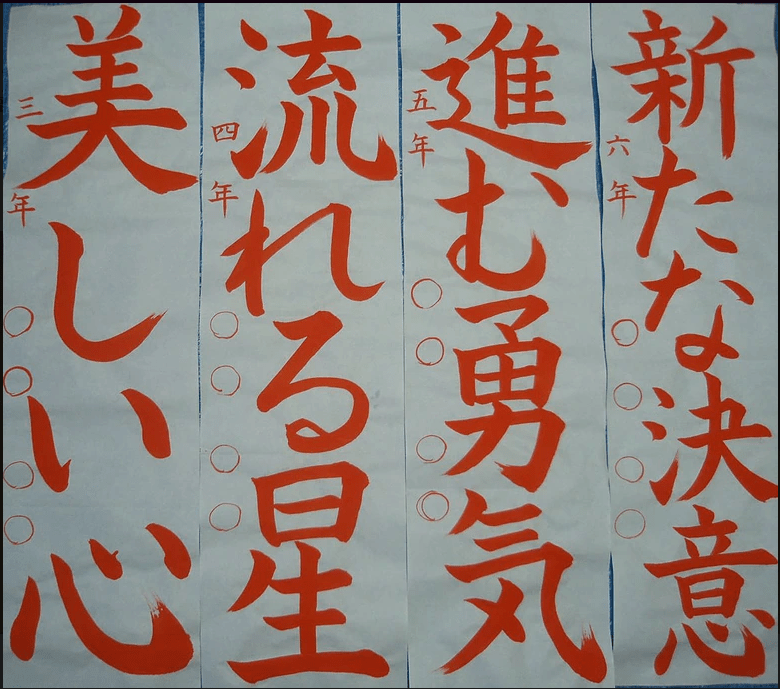 新たな決意
六年○○○○
進む勇気
五年○○○○
流れる星
四年○○○○
美しい心
三年○○○○